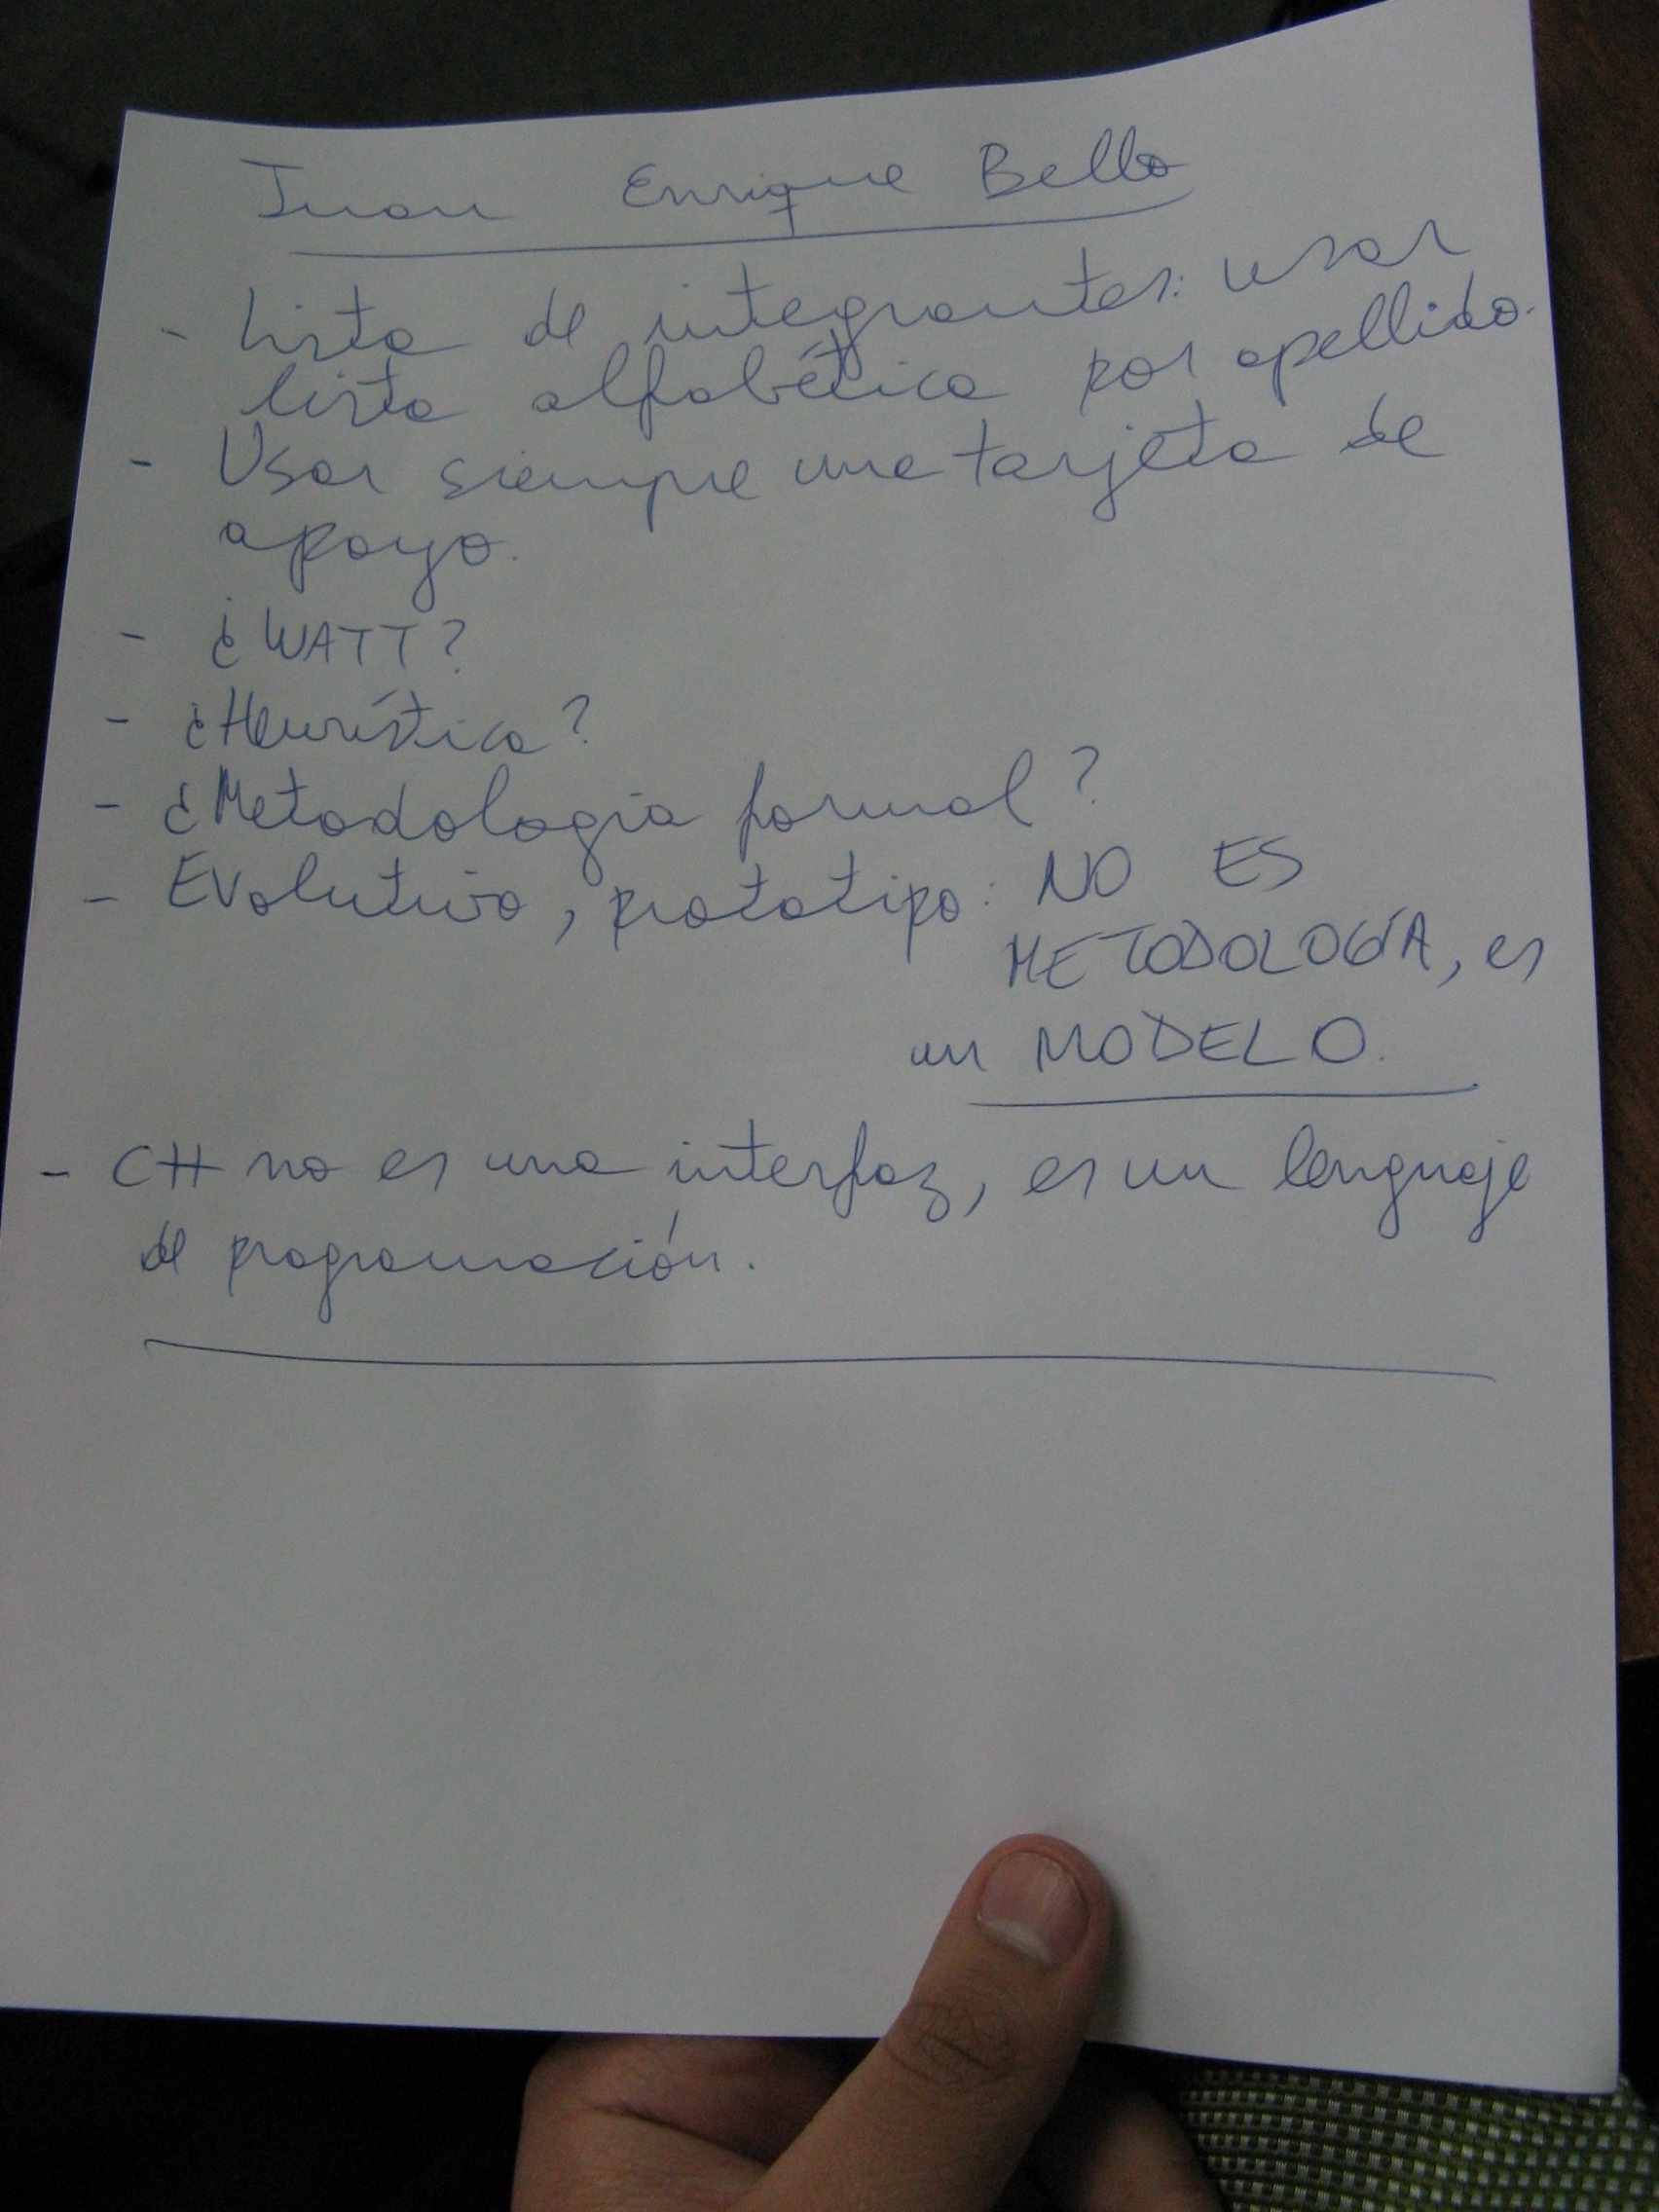 Juan Enrique Bello
- Lista de integrantes: usar
lista alfabética por apellido.
- Usar siempre una tarjeta de
apoyo.
- ¿WATT?
- ¿Heurística?
- ¿Metodología formal?
- Evolutivo, prototipo: NO ES
METODOLOGÍA, es
un MODELO.
- C# no es una interfaz, es un lenguaje
de programación.